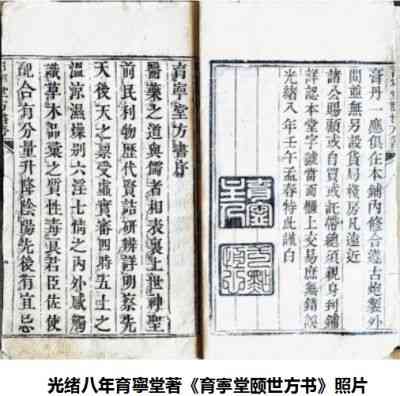 膏丹一應俱在本鋪內修合遵古炮製外
間並無另設貨局棧房凡遠近
諸公賜顧或自買或託帶總須親身到鋪
詳認本堂字號當面櫃上交易庶無錯誤
光緒八年壬午孟春特此謹白
育寧堂方書序
醫藥之道與儒者相表裏上世神聖
前民利物歷代賢喆研辨詳明察先
天後天之禀受虛實審四時五土之
溫涼濕燥別六淫七情之內外感觸
識草木品彙之質性毒君臣佐使
配合有分量升降陰陽先後有宜忌
光绪八年育寧堂著《育寧堂颐世方书》照片